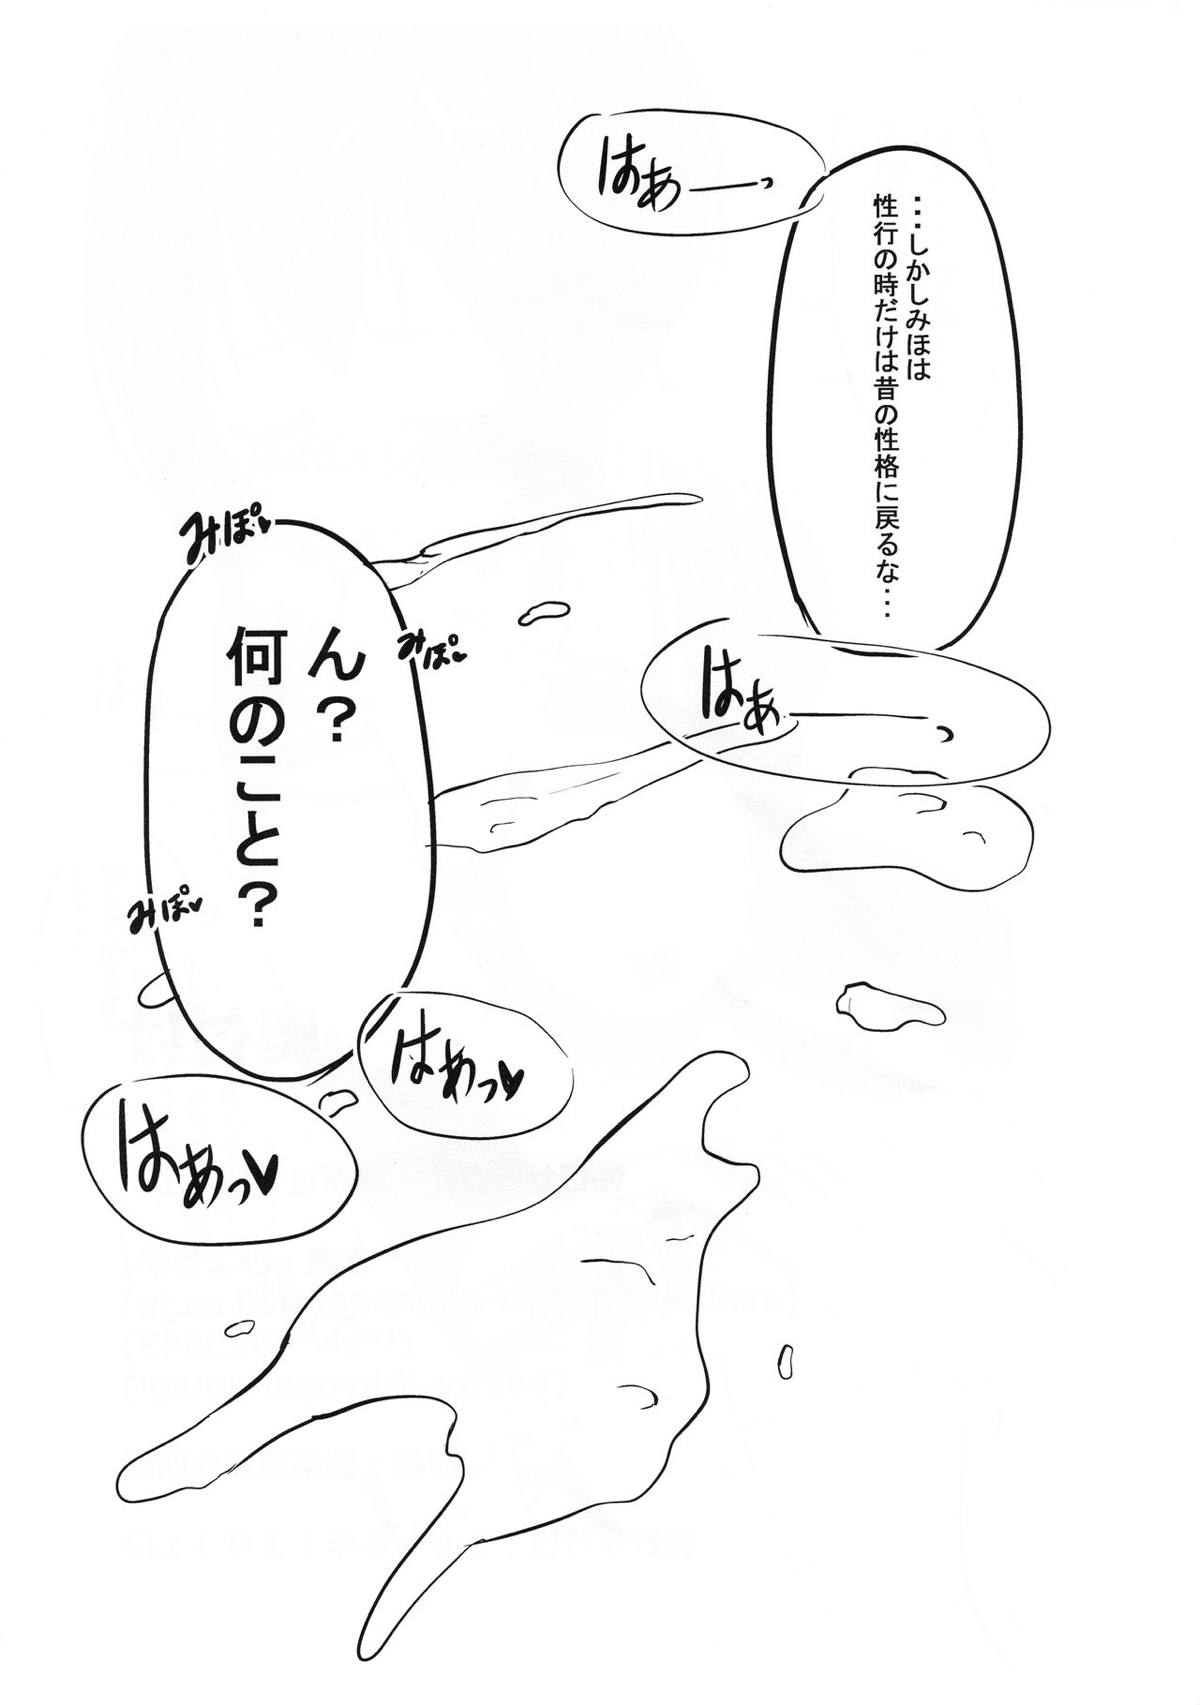 はあーっ
・・・しかしみほは
性行の時だけは昔の性格に戻るな・・・
はあーっ
みぽ♥
みぽ♥
ん？
何のこと？
みぽ♥
はあっ♥
はあっ♥